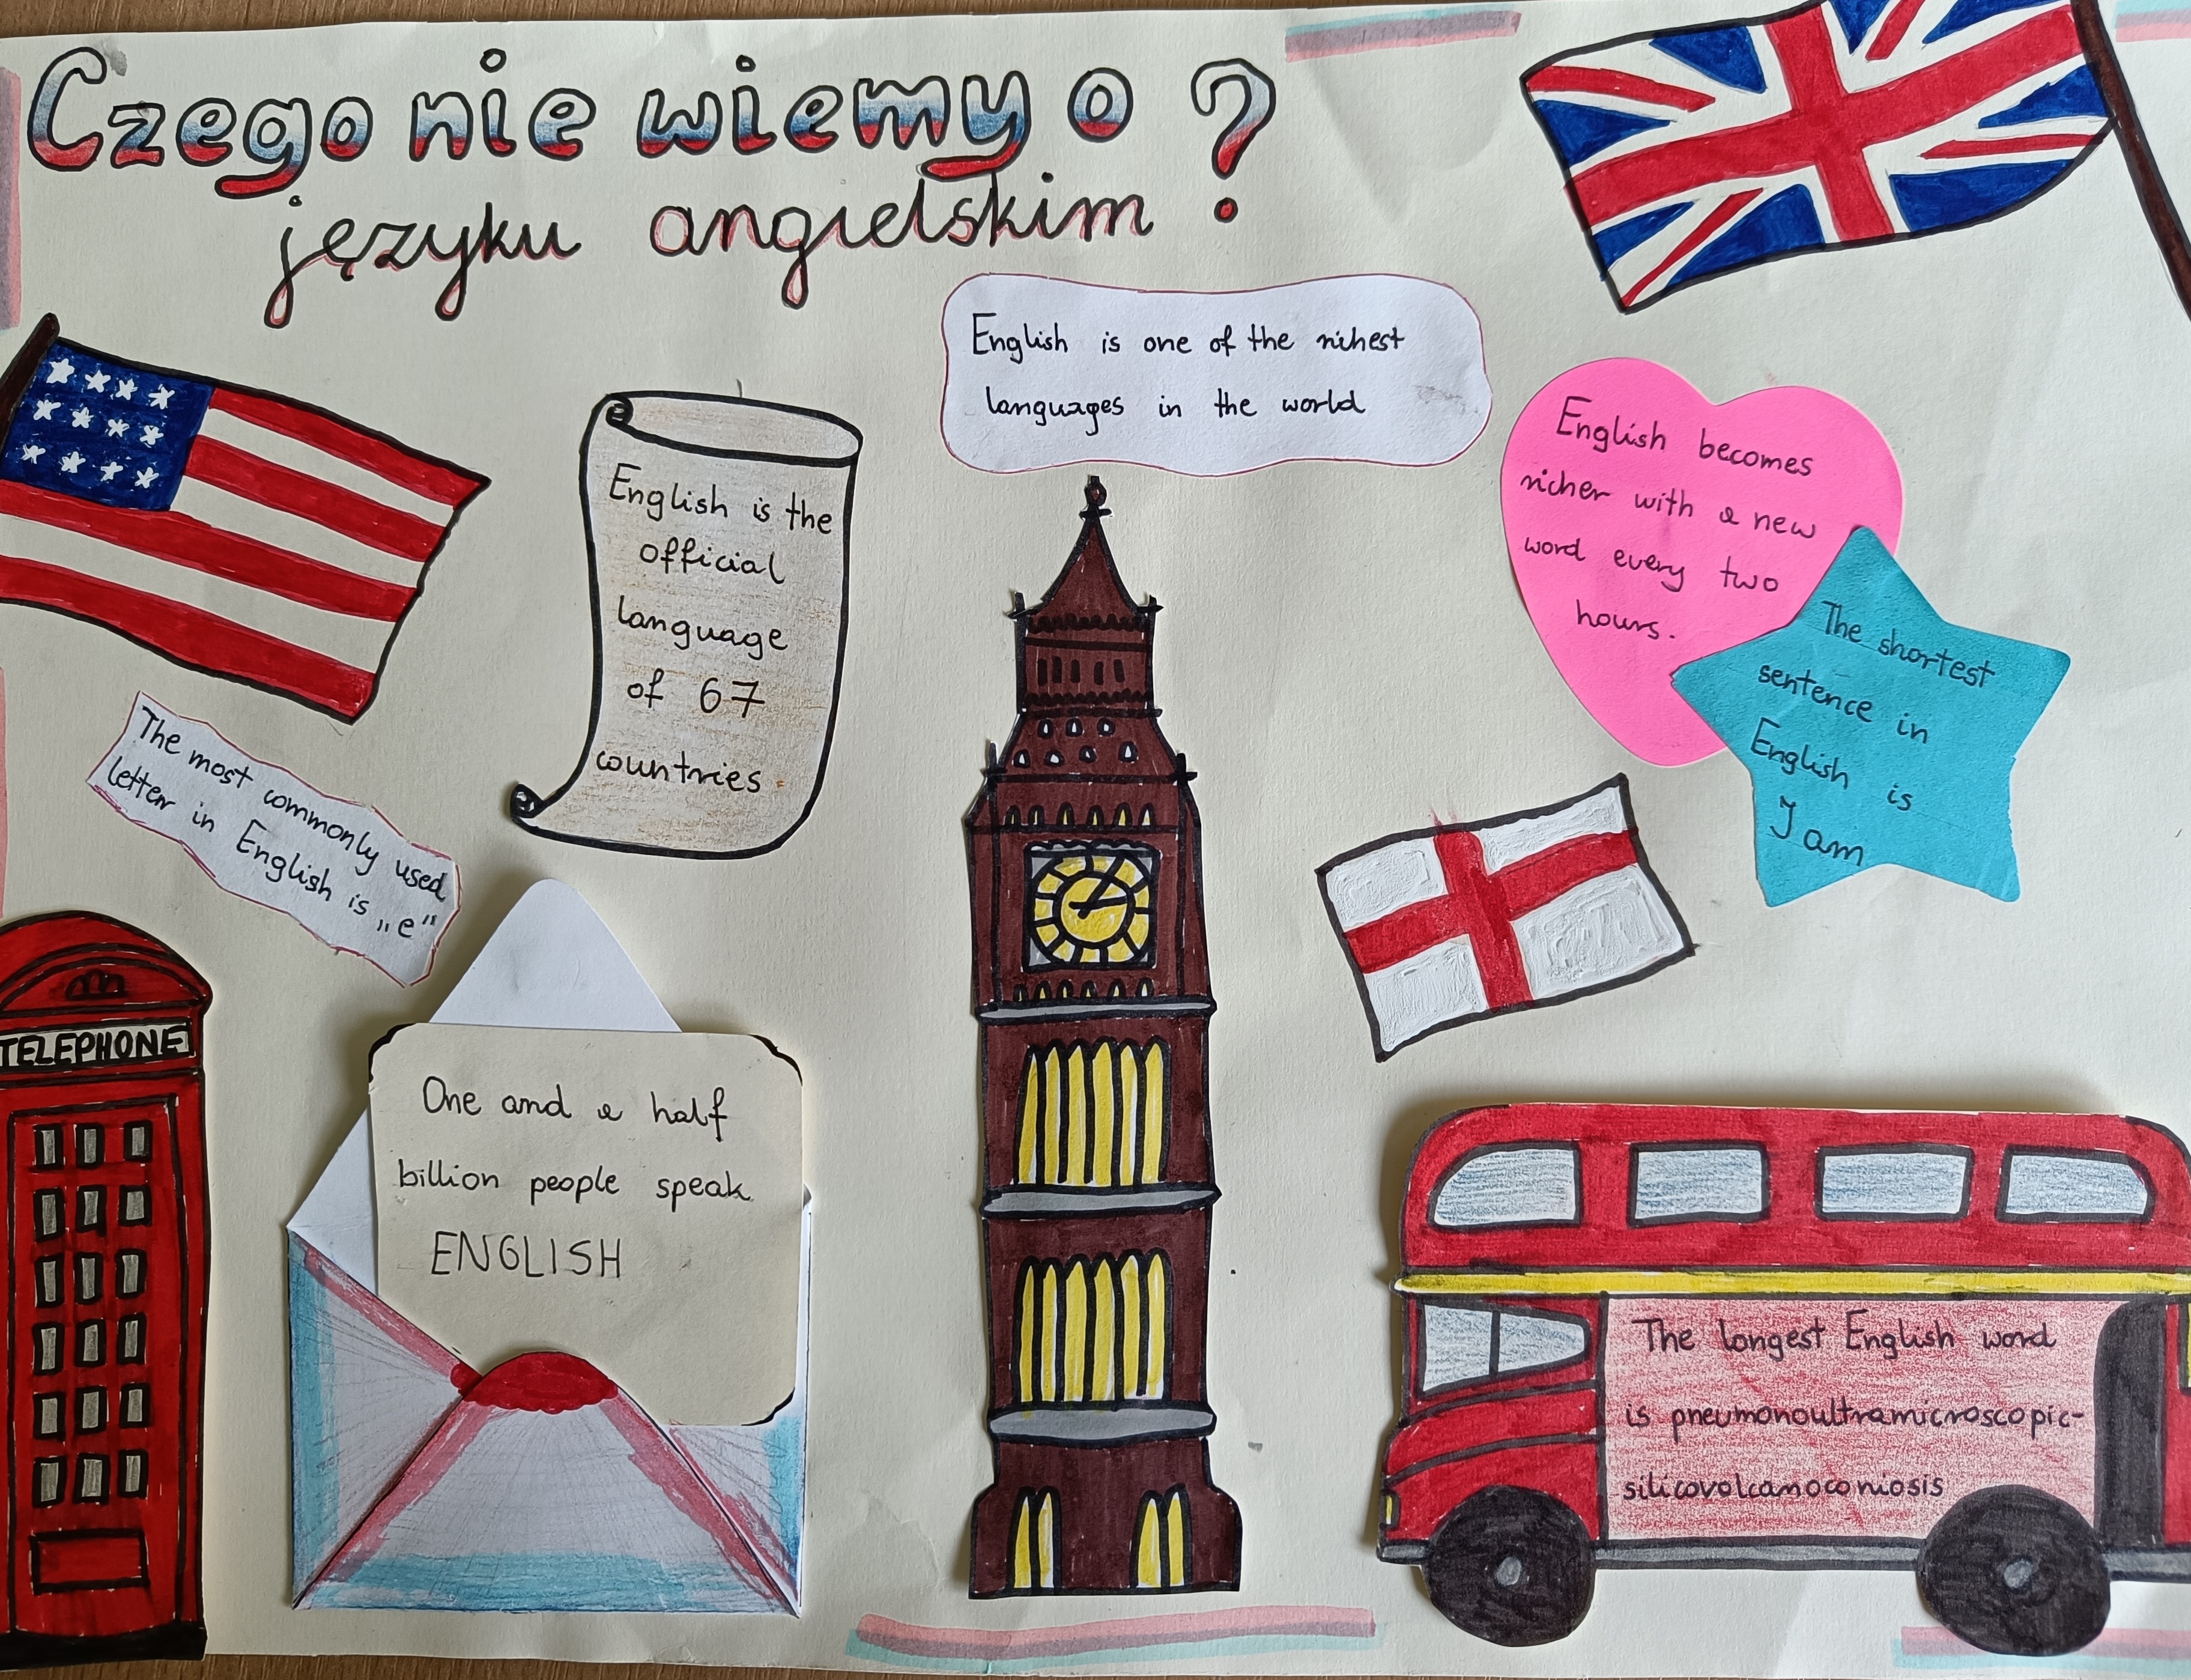 Czego nie wiemy o ?
języku angielskim
English is one of the richest
languages in the world
English is the
official
language
of 67
countries.
English becomes
richer with a new
word every two
hours.
The shortest
sentence in
English is
I am
The most commonly used
letter in English is „e"
TELEPHONE
One and a half
billion people speak
ENGLISH
The longest English word
is pneumonoultramicroscopic-
silicovolcanoconiosis